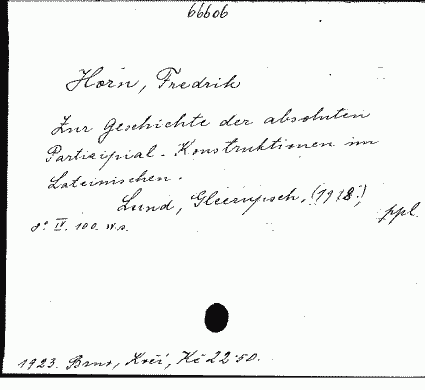 66606
Horn, Fredrik
Zur Geschichte der absoluten
Partizipial-Konstruktionen im
Lateinischen.
Lund, Gleerupsch, (1918.)
ppl.
8° IV. 100. II s.
1923. Brno, Kočí, Kč 22·50.